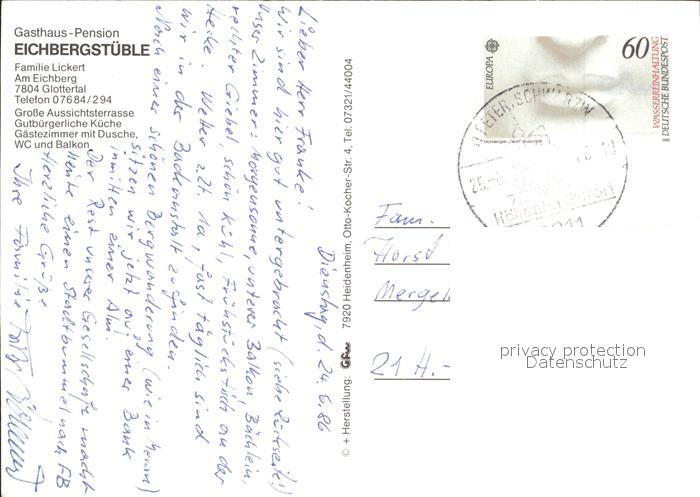 Gasthaus-Pension
EICHBERGSTÜBLE
Familie Lickert
Am Eichberg
7804 Glottertal
Telefon 07684/294
Große Aussichtsterrasse
Gutbürgerliche Küche
Gästezimmer mit Dusche,
WC und Balkon
Dienstag, d. 24.6.86
Lieber Herr Franke!
Wir sind hier gut untergebracht (siehe Rückseite!)
Unser Zimmer: Morgensonne, unterer Balkon, Bächlein,
rechter Giebel, schön kühl, Frühstückstisch an der
Hecke. Wetter z.Zt. 1a, fast täglich sind
wir in der Badeanstalt zu finden.
Nach einer schönen Bergwanderung (wie in Meran)
sitzen wir jetzt auf einer Bank
inmitten einer Alm.
Der Rest unserer Gesellschaft macht
heute einen Stadtbummel nach FB
Herzliche Grüße
Ihre Familie
© + Herstellung: 7920 Heidenheim, Otto-Kocher-Str. 4, Tel. 07321/44004
EUROPA
60
WASSERREINHALTUNG
DEUTSCHE BUNDESPOST
ST. PETER, SCHWARZW
25.-6
7811
Fam.
Horst
Mergel
21 H.-
privacy protection
Datenschutz